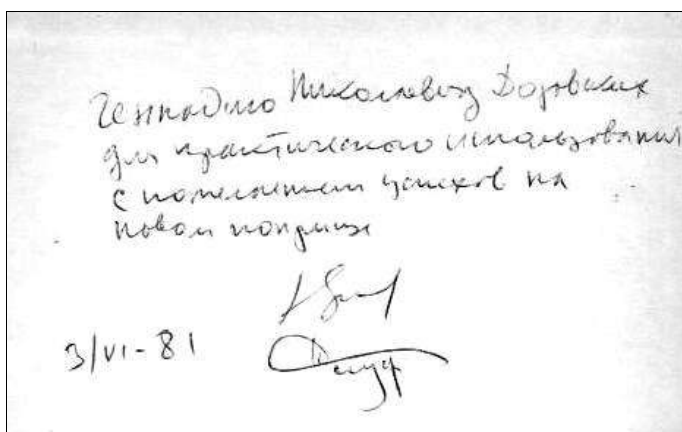 Геннадию Николаевичу Боровских
для практического использования
с пожеланием успехов на
новом поприще
3/VI-81